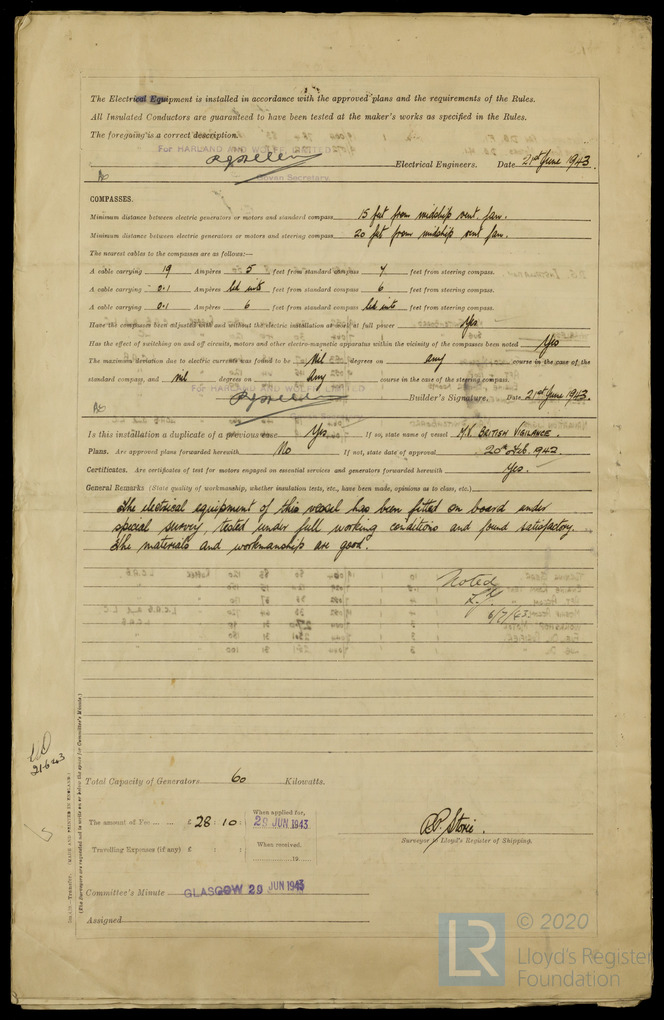 The Electrical Equipment is installed in accordance with the approved plans and the requirements of the Rules.
All Insulated Conductors are guaranteed to have been tested at the maker's works as specified in the Rules.
The foregoing is a correct description.
For HARLAND AND WOLFF, LIMITED
Electrical Engineers. Date 21st June 1943.
Secretary.
COMPASSES.
Minimum distance between electric generators or motors and standard compass 15 feet from midship vent fan.
Minimum distance between electric generators or motors and steering compass 20 feet from midship vent fan.
The nearest cables to the compasses are as follows:—
A cable carrying 19 Ampères 5 feet from standard compass 7 feet from steering compass.
A cable carrying 0.1 Ampères led into feet from standard compass 6 feet from steering compass.
A cable carrying 0.1 Ampères 6 feet from standard compass led into feet from steering compass.
Have the compasses been adjusted with and without the electric installation at work at full power Yes
Has the effect of switching on and off circuits, motors and other electro-magnetic apparatus within the vicinity of the compasses been noted Yes
The maximum deviation due to electric currents was found to be Nil degrees on any course in the case of the
standard compass, and nil degrees on any course in the case of the steering compass.
For HARLAND AND WOLFF, LIMITED
Builder's Signature. Date 21st June 1943.
Is this installation a duplicate of a previous case Yes. If so, state name of vessel M.V. BRITISH VIGILANCE.
Plans. Are approved plans forwarded herewith No If not, state date of approval 20th Feb. 1942
Certificates. Are certificates of test for motors engaged on essential services and generators forwarded herewith Yes.
General Remarks (State quality of workmanship, whether insulation tests, etc., have been made, opinions as to class, etc.)
The electrical equipment of this vessel has been fitted on board under
special survey, tested under full working conditions and found satisfactory.
The materials and workmanship are good.
Noted
6/7/43.
21.6.43
Total Capacity of Generators 60 Kilowatts.
The amount of Fee £ 28 : 10 : When applied for, 29 JUN 1943
Travelling Expenses (if any) £ : : When received, 19
R.P. Storie.
Surveyor to Lloyd's Register of Shipping.
Committee's Minute GLASGOW 29 JUN 1943
Assigned
(MADE AND PRINTED IN ENGLAND.)
(The Surveyors are requested not to write on or below the space for Committee's Minute.)
LR
© 2020
Lloyd's Register
Foundation